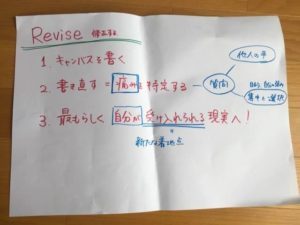 Revise 修正する
1. キャンバスを書く
2. 書き直す = 痛みを特定する
質問
他人の手
自分、自分の
集中と選択
3. 最もらしく 自分が 受け入れられる 現実へ!
新たな着地点